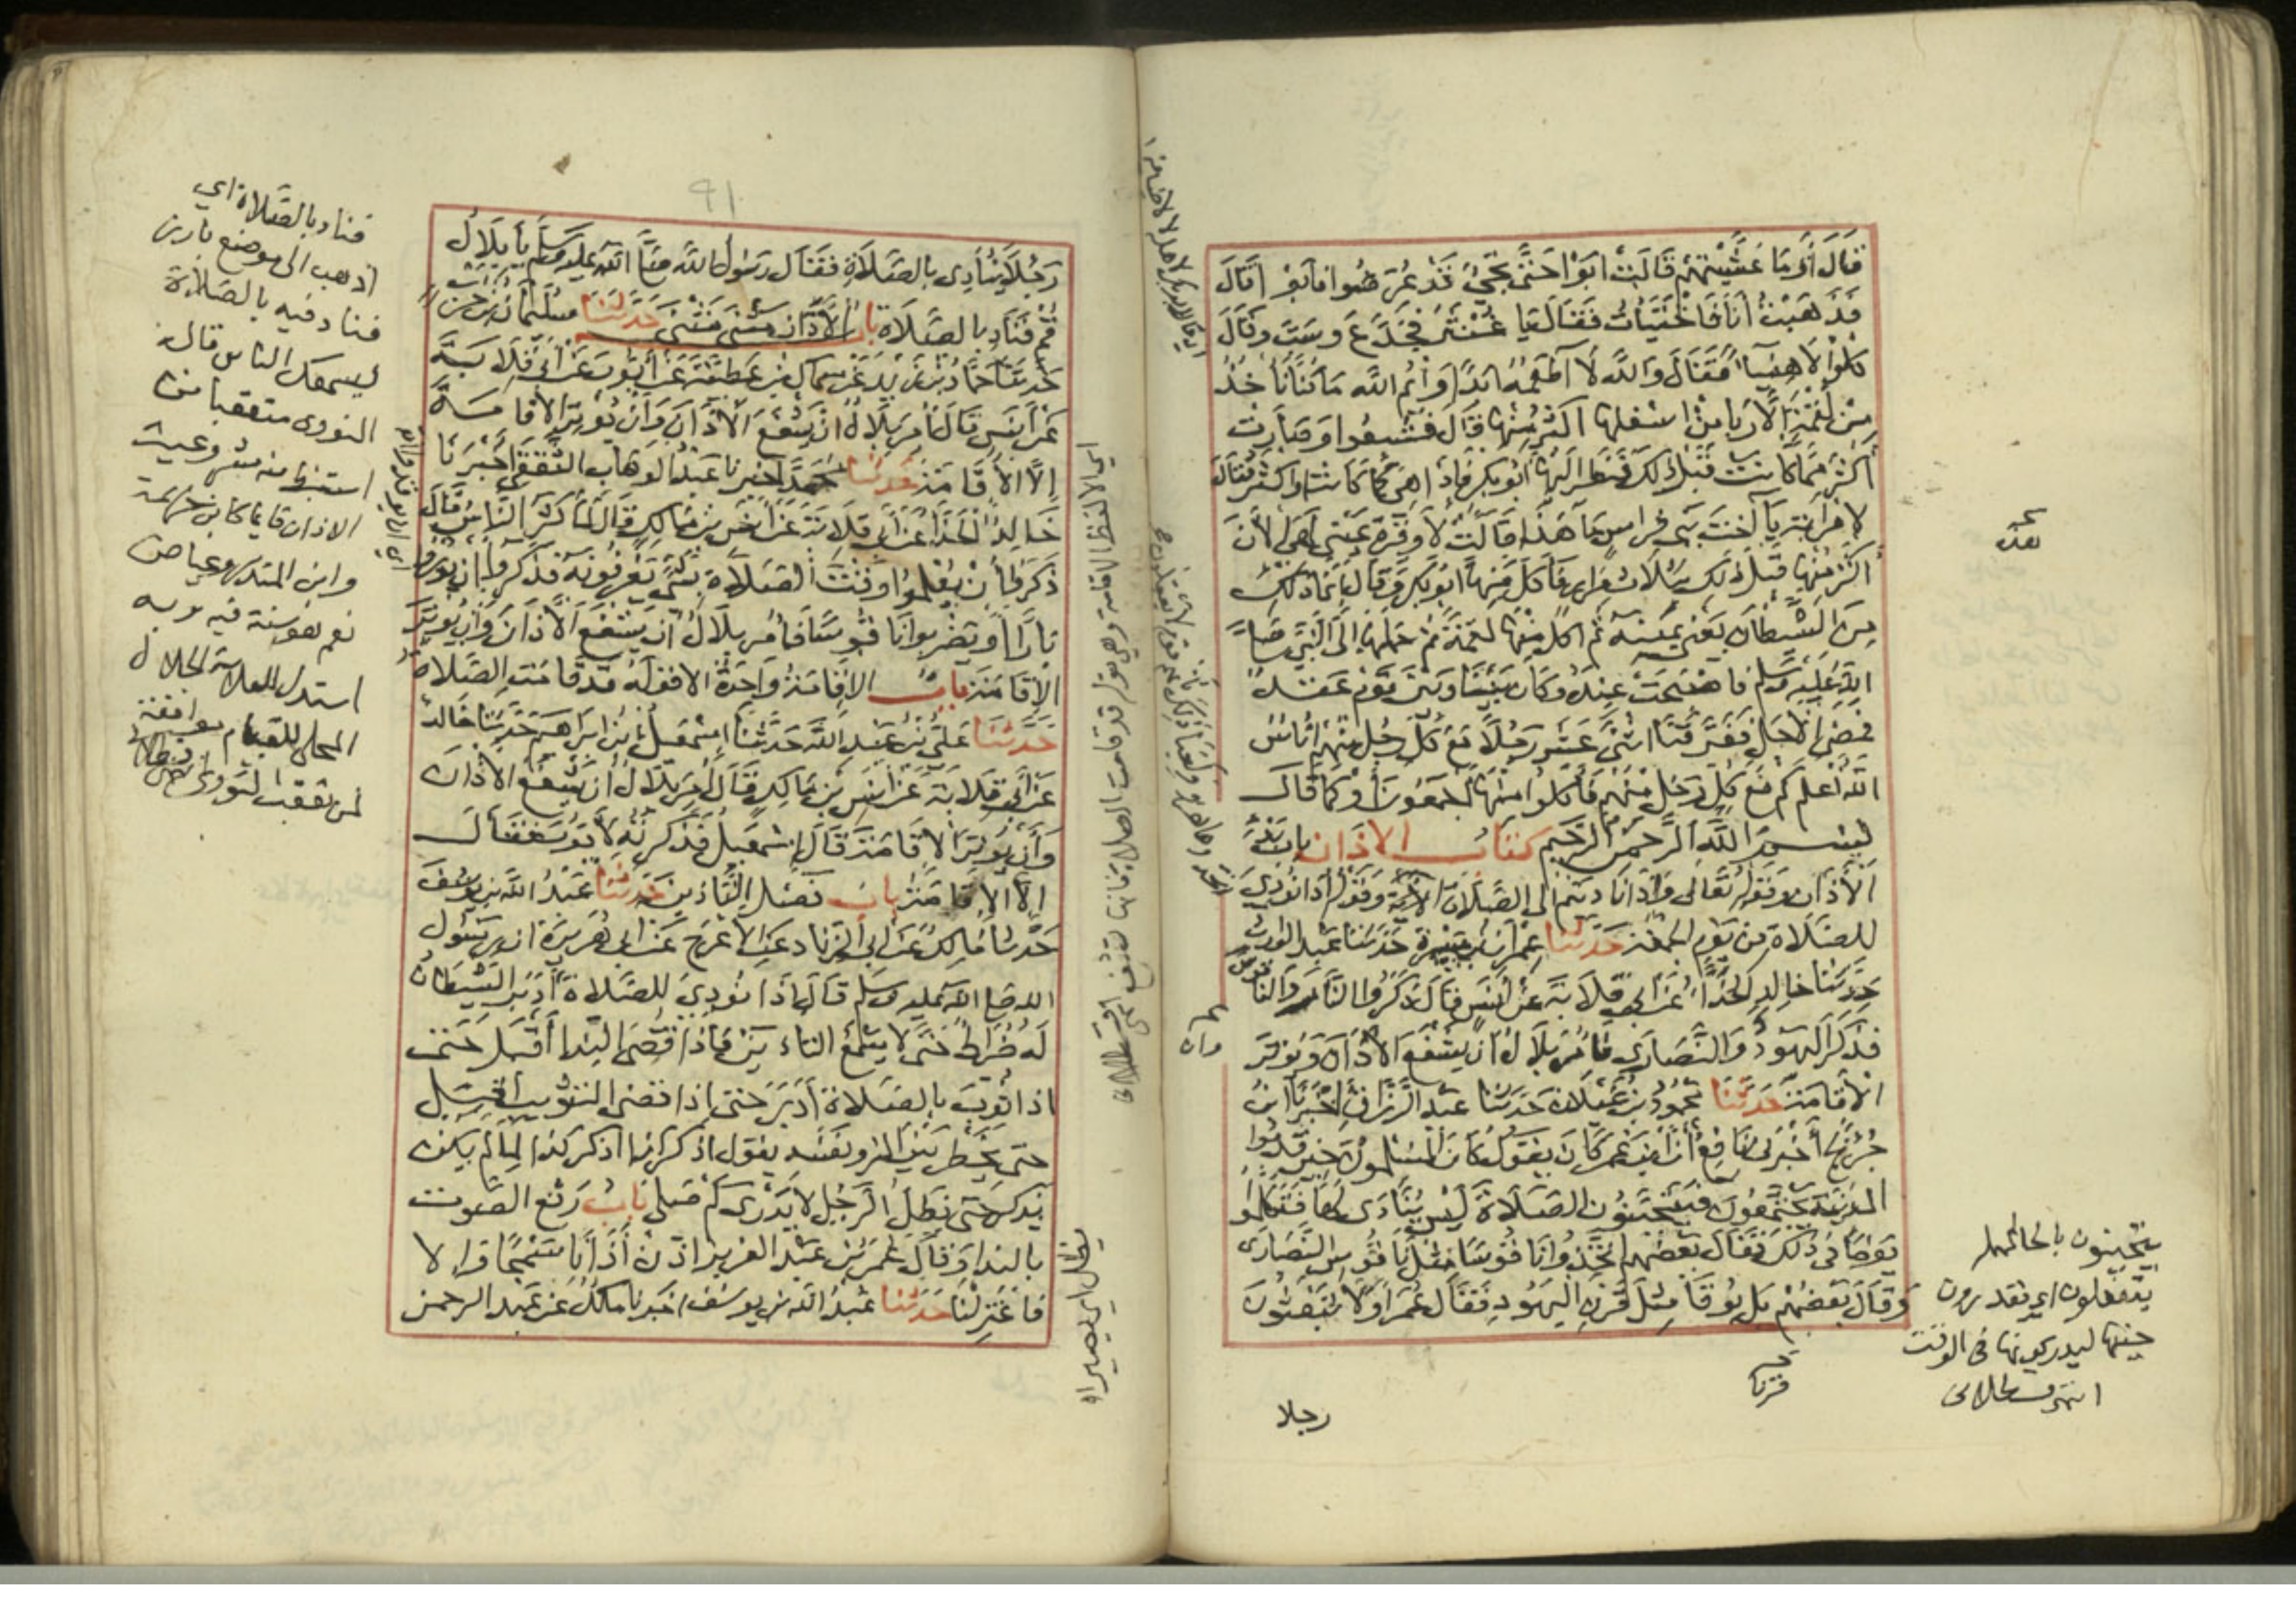 قَالَ أَوَمَا عَشَّيْتِهِمْ قَالَتْ أَبَوْا حَتَّى تَجِيءَ قَدْ عُرِضُوا فَأَبَوْا قَالَ
فَذَهَبْتُ أَنَا فَاخْتَبَأْتُ فَقَالَ يَا غُنْثَرُ فَجَدَّعَ وَسَبَّ وَقَالَ
كُلُوا لَا هَنِيئًا فَقَالَ وَاللَّهِ لَا أَطْعَمُهُ أَبَدًا وَأَيْمُ اللَّهِ مَا كُنَّا نَأْخُذُ
مِنْ لُقْمَةٍ إِلَّا رَبَا مِنْ أَسْفَلِهَا أَكْثَرُ مِنْهَا قَالَ فَشَبِعُوا وَصَارَتْ
أَكْثَرَ مِمَّا كَانَتْ قَبْلَ ذَلِكَ فَنَظَرَ إِلَيْهَا أَبُو بَكْرٍ فَإِذَا هِيَ كَمَا كَانَتْ أَوْ أَكْثَرُ فَقَالَ
لِامْرَأَتِهِ يَا أُخْتَ بَنِي فِرَاسٍ مَا هَذَا قَالَتْ لَا وَقُرَّةِ عَيْنِي لَهِيَ الْآنَ
أَكْثَرُ مِنْهَا قَبْلَ ذَلِكَ بِثَلَاثِ مِرَارٍ فَأَكَلَ مِنْهَا أَبُو بَكْرٍ وَقَالَ إِنَّمَا ذَلِكَ
مِنَ الشَّيْطَانِ يَعْنِي يَمِينَهُ ثُمَّ أَكَلَ مِنْهَا لُقْمَةً ثُمَّ حَمَلَهَا إِلَى النَّبِيِّ صَلَّى
اللَّهُ عَلَيْهِ وَسَلَّمَ فَأَصْبَحَتْ عِنْدَهُ وَكَانَ بَيْنَنَا وَبَيْنَ قَوْمٍ عَقْدٌ
فَمَضَى الْأَجَلُ فَفَرَّقَنَا اثْنَى عَشَرَ رَجُلًا مَعَ كُلِّ رَجُلٍ مِنْهُمْ أُنَاسٌ
اللَّهُ أَعْلَمُ كَمْ مَعَ كُلِّ رَجُلٍ مِنْهُمْ فَأَكَلُوا مِنْهَا أَجْمَعُونَ أَوْ كَمَا قَالَ
بِسْمِ اللَّهِ الرَّحْمَنِ الرَّحِيمِ كتاب الأذان باب بدء
الْأَذَانِ وَقَوْلِهِ تَعَالَى وَإِذَا نَادَيْتُمْ إِلَى الصَّلَاةِ الْآيَةَ وَقَوْلِهِ إِذَا نُودِيَ
لِلصَّلَاةِ مِنْ يَوْمِ الْجُمُعَةِ حَدَّثَنَا عِمْرَانُ بْنُ مَيْسَرَةَ حَدَّثَنَا عَبْدُ الْوَارِثِ
حَدَّثَنَا خَالِدٌ الْحَذَّاءُ عَنْ أَبِي قِلَابَةَ عَنْ أَنَسٍ قَالَ ذَكَرُوا النَّارَ وَالنَّاقُوسَ
فَذَكَرُوا الْيَهُودَ وَالنَّصَارَى فَأُمِرَ بِلَالٌ أَنْ يَشْفَعَ الْأَذَانَ وَيُوتِرَ
الْإِقَامَةَ حَدَّثَنَا مَحْمُودُ بْنُ غَيْلَانَ حَدَّثَنَا عَبْدُ الرَّزَّاقِ أَخْبَرَنَا ابْنُ
جُرَيْجٍ أَخْبَرَنِي نَافِعٌ أَنَّ ابْنَ عُمَرَ كَانَ يَقُولُ كَانَ الْمُسْلِمُونَ حِينَ قَدِمُوا
الْمَدِينَةَ يَجْتَمِعُونَ فَيَتَحَيَّنُونَ الصَّلَاةَ لَيْسَ يُنَادَى لَهَا فَتَكَلَّمُوا
يَوْمًا فِي ذَلِكَ فَقَالَ بَعْضُهُمُ اتَّخِذُوا نَاقُوسًا مِثْلَ نَاقُوسِ النَّصَارَى
وَقَالَ بَعْضُهُمْ بَلْ بُوقًا مِثْلَ قَرْنِ الْيَهُودِ فَقَالَ عُمَرُ أَوَلَا تَبْعَثُونَ
يتحينون بالحاء المهملة
يتفعلون اي يقدرون
حينها ليدركونها في الوقت
انتهى قسطلاني
قرنا
رجلا
وان
٩١
رَجُلًا يُنَادِي بِالصَّلَاةِ فَقَالَ رَسُولُ اللَّهِ صَلَّى اللَّهُ عَلَيْهِ وَسَلَّمَ يَا بِلَالُ
قُمْ فَنَادِ بِالصَّلَاةِ باب الْأَذَانِ مَثْنَى مَثْنَى حَدَّثَنَا سُلَيْمَانُ بْنُ حَرْبٍ
حَدَّثَنَا حَمَّادُ بْنُ زَيْدٍ عَنْ سِمَاكِ بْنِ عَطِيَّةَ عَنْ أَيُّوبَ عَنْ أَبِي قِلَابَةَ
عَنْ أَنَسٍ قَالَ أُمِرَ بِلَالٌ أَنْ يَشْفَعَ الْأَذَانَ وَأَنْ يُوتِرَ الْإِقَامَةَ
إِلَّا الْإِقَامَةَ حَدَّثَنَا مُحَمَّدٌ أَخْبَرَنَا عَبْدُ الْوَهَّابِ الثَّقَفِيُّ أَخْبَرَنَا
خَالِدٌ الْحَذَّاءُ عَنْ أَبِي قِلَابَةَ عَنْ أَنَسِ بْنِ مَالِكٍ قَالَ لَمَّا كَثُرَ النَّاسُ قَالَ
ذَكَرُوا أَنْ يُعْلِمُوا وَقْتَ الصَّلَاةِ بِشَيْءٍ يَعْرِفُونَهُ فَذَكَرُوا أَنْ يُورُوا
نَارًا أَوْ يَضْرِبُوا نَاقُوسًا فَأُمِرَ بِلَالٌ أَنْ يَشْفَعَ الْأَذَانَ وَأَنْ يُوتِرَ
الْإِقَامَةَ باب الْإِقَامَةُ وَاحِدَةٌ إِلَّا قَوْلَهُ قَدْ قَامَتِ الصَّلَاةُ
حَدَّثَنَا عَلِيُّ بْنُ عَبْدِ اللَّهِ حَدَّثَنَا إِسْمَعِيلُ بْنُ إِبْرَاهِيمَ حَدَّثَنَا خَالِدٌ
عَنْ أَبِي قِلَابَةَ عَنْ أَنَسِ بْنِ مَالِكٍ قَالَ أُمِرَ بِلَالٌ أَنْ يَشْفَعَ الْأَذَانَ
وَأَنْ يُوتِرَ الْإِقَامَةَ قَالَ إِسْمَعِيلُ فَذَكَرْتُهُ لِأَيُّوبَ فَقَالَ
إِلَّا الْإِقَامَةَ باب فَضْلِ التَّأْذِينِ حَدَّثَنَا عَبْدُ اللَّهِ بْنُ يُوسُفَ
حَدَّثَنَا مَالِكٌ عَنْ أَبِي الزِّنَادِ عَنِ الْأَعْرَجِ عَنْ أَبِي هُرَيْرَةَ أَنَّ رَسُولَ
الله صلى الله عليه وسلم قَالَ إِذَا نُودِيَ لِلصَّلَاةِ أَدْبَرَ الشَّيْطَانُ
لَهُ ضُرَاطٌ حَتَّى لَا يَسْمَعَ التأذين فَإِذَا قُضِيَ النِّدَا أَقْبَلَ حَتَّى
اذا ثُوِّبَ بِالصَّلَاةِ أَدْبَرَ حَتَّى إِذَا قضى التثويب أقبل
حتى يَخْطُرَ بَيْنَ المرء ونفسه يقول اذكر كذا اذكر كذا لِمَا لَمْ يكن
يذكر حَتَّى يَظَلَّ الرَّجُلُ لَا يَدْرِي كَمْ صلى باب رَفْعِ الصوت
بالندا وَقَالَ عُمَرُ بْنُ عَبْدِ العزيز اذن أَذَانًا سَمْحًا وإلا
فَاعْتَزِلْنَا حَدَّثَنَا عَبْدُ اللَّهِ بْنُ يُوسُفَ اخبرنا مَالِكٌ عَنْ عَبْدِ الرحمن
فناد بالصلاة اي
اذهب الى موضع بارز
فناد فيه بالصلاة
ليسمعك الناس قاله
النووي متعقبا من
استنبط منه مشروعية
الاذان قائما كابن خزيمة
وابن المنذر وعياض
نعم هو سنة فيه وبه
استدل العلامة الجلال
المحلي للقيام موافقة
لمن تعقب النووي